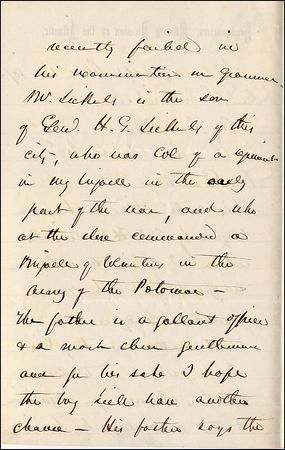 recently failed in
his examination in grammar.
Mr. Sickels is the son
of Genl. H. G. Sickels of this
city, who was Col of a regiment
in my brigade in the early
part of the war, and who
at the close commanded a
Brigade of Volunteers in the
Army of the Potomac —
The father is a gallant officer
& a most clever gentleman
and for his sake I hope
the boy will have another
chance — His father says the